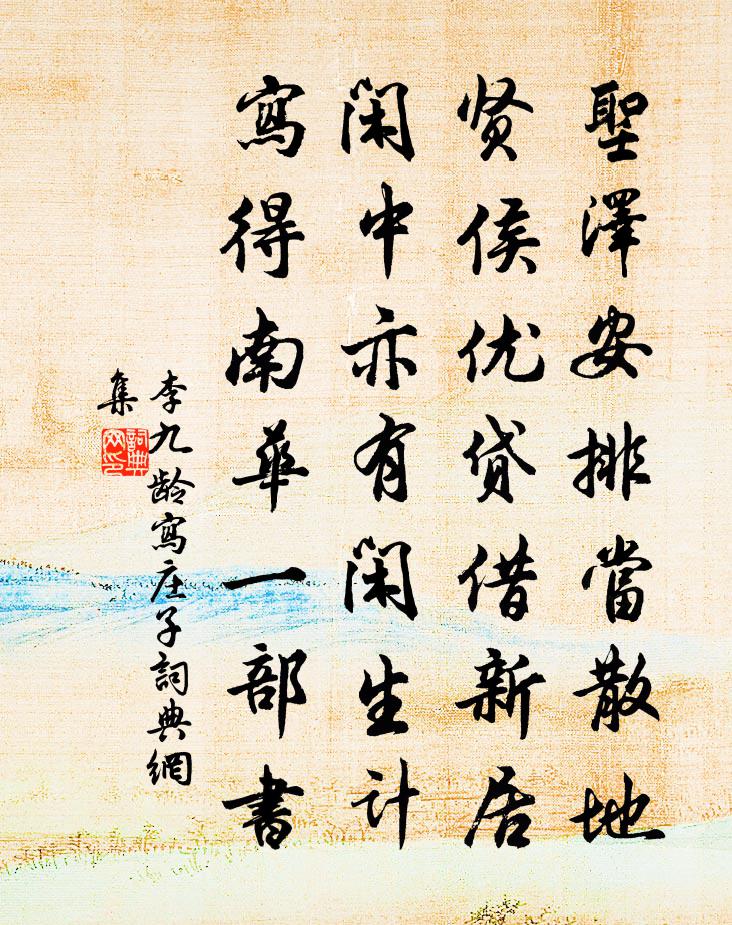 聖澤安排當散地
贤侯优贷借新居
闲中亦有闲生计
寫得南華一部書
李九龄寫庄子詞典網
集
詞典網印